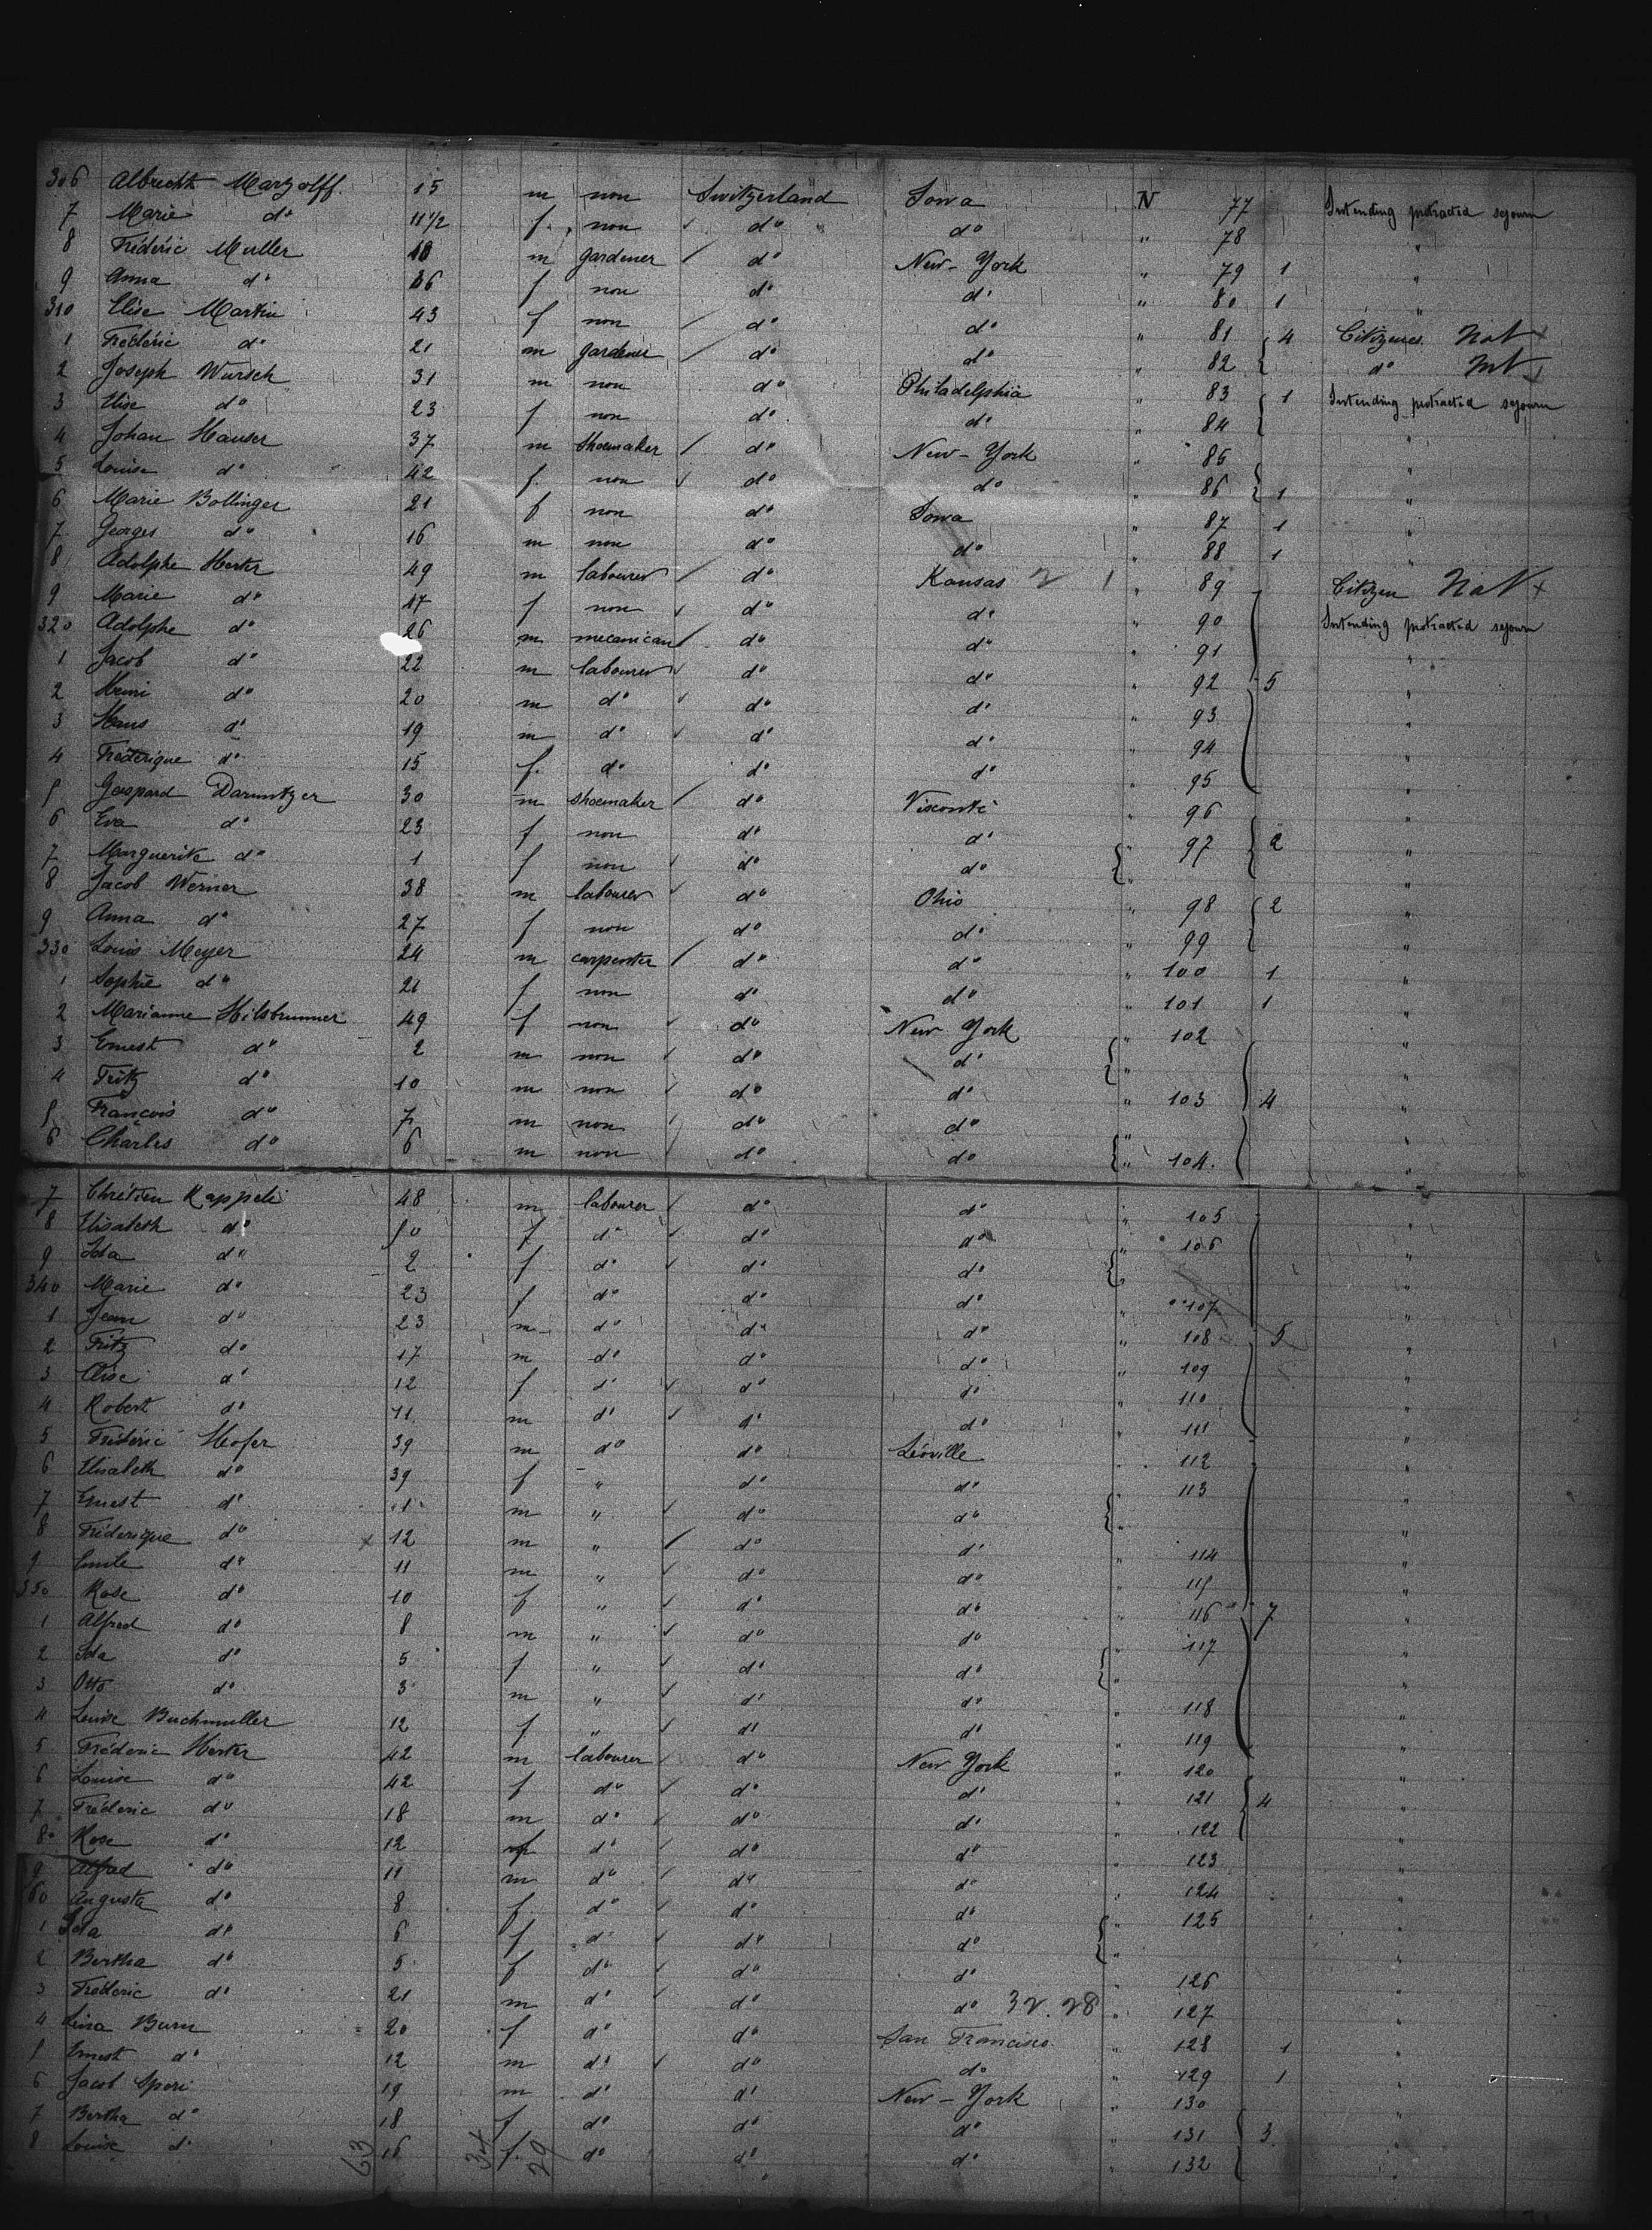 306 Albrecht Marzolff. 15 m non Switzerland Iowa N 77 Intending protracted sejourn
7 Marie do 11 1/2 f. non do do " 78 "
8 Fréderic Muller m gardener do New-York " 79 1 "
9 Anna do f non do do " 80 1 "
310 Elise Martin 43 f non do do " 81 4 Citizens Nat
1 Fréderic do 21 m gardener do do " 82 do Nat
2 Joseph Wursch 31 m non do Philadelphia " 83 1 Intending protracted sejourn
3 Elise do 23 f non do do " 84 "
4 Johan Hauser 37 m shoemaker do New-York " 85 "
5 Louise do 42 f. non do do " 86 1 "
6 Marie Bollinger 21 f non do Iowa " 87 1 "
7 Georges do 16 m non do do " 88 1 "
8 Adolphe Herter 49 m labourer do Kansas 2 1 " 89 Citizen Nat +
9 Marie do 47 f non do do " 90 Intending protracted sejourn
320 Adolphe do 26 m mecanican do do " 91 "
1 Jacob do 22 m labourer do do " 92 5 "
2 Henri do 20 m do do do " 93 "
3 Hans do 19 m do do do " 94 "
4 Fréderique do 15 f. do do do " 95 "
5 Gaspard Darmntzer 30 m shoemaker do Visconti " 96 "
6 Eva do 23 f non do do " 97 2 "
7 Marguerite do 1 f non do do " "
8 Jacob Werner 38 m labourer do Ohio " 98 2 "
9 Anna do 27 f non do do " 99 "
330 Louis Meyer 24 m carpenter do do " 100 1 "
1 Sophie do 21 f non do do " 101 1 "
2 Marianne Hilsbrunner 49 f non do New York " 102 "
3 Ernest do 2 m non do do " "
4 Fritz do 10 m non do do " 103 4 "
5 François do 7 m non do do " "
6 Charles do 6 m non do do " 104. "
7 Chrétien Kappeli 48 m labourer do do " 105 "
8 Elisabeth do 50 f do do do " 106 "
9 Ida do 2 f do do do " "
340 Marie do 23 f do do do " 107 "
1 Jean do 23 m do do do " 108 5 "
2 Fritz do 17 m do do do " 109 "
3 Elise do 12 f do do do " 110 "
4 Robert do 11 m do do do " 111 "
5 Fréderic Hofer 39 m do do Léoville " 112 "
6 Elisabeth do 39 f " do do " 113 "
7 Ernest do 1 m " do do " "
8 Fréderique do x 12 m " do do " 114 "
9 Emile do 11 m " do do " 115 "
350 Rose do 10 f " do do " 116 7 "
1 Alfred do 8 m " do do " 117 "
2 Ida do 5 f " do do " "
3 Otto do 3 m " do do " 118 "
4 Louise Buchmuller 12 f " do do " 119 "
5 Fréderic Herter 42 m labourer do New York " 120 "
6 Louise do 42 f do do do " 121 4 "
7 Fréderic do 18 m do do do " 122 "
8 Rose do 12 f do do do " 123 "
9 Alfred do 11 m do do do " 124 "
60 Augusta do 8 f do do do " 125 "
1 Ida do 6 f do do do " "
2 Bertha do 5 f do do do " 126 "
3 Fréderic do 21 m do do do 32. 28 " 127 "
4 Lina Burn 20 f do do San Francisco " 128 1 "
5 Ernest do 12 m do do do " 129 1 "
6 Jacob Spori 19 m do do New-York " 130 "
7 Bertha do 18 f do do do " 131 3 "
8 Louise do 16 f. do do do " 132 "
63 34 29